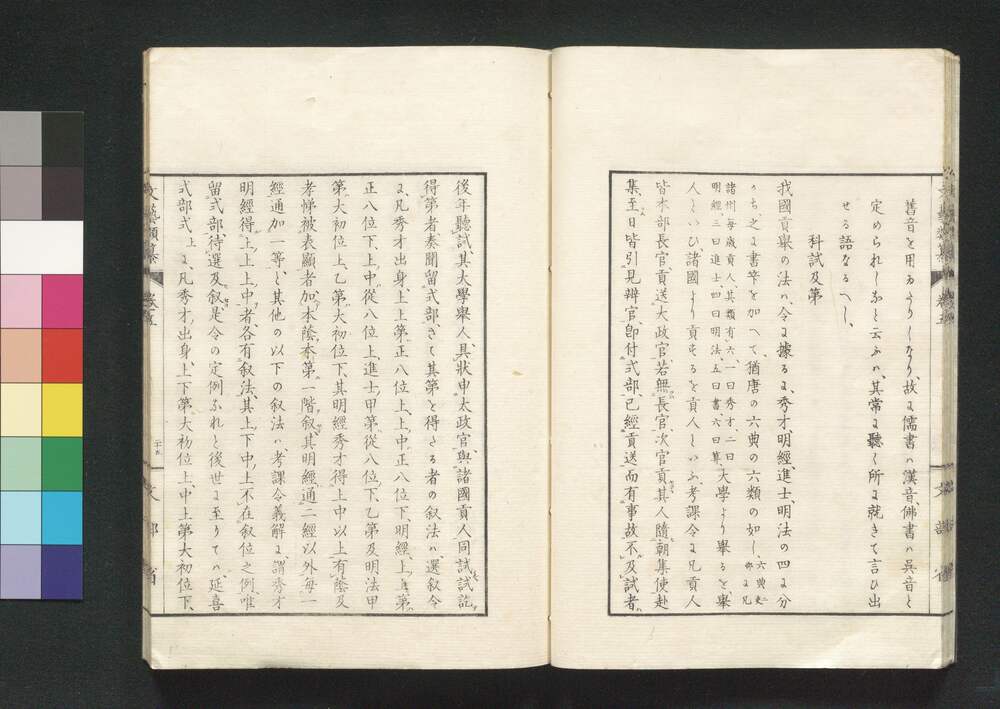 舊音を用ゐたりしなり、故に儒書ハ漢音、佛書ハ呉音と
定められしなと云ふハ、其常に聽く所に就きて言ひ出
せる語なるへし、
科試及第
我國貢舉の法ハ、令に據るに、秀才、明經、進士、明法の四に分
かち、之に書筭を加へて、猶唐の六典の六類の如し、六典吏部に凡
諸州毎歳貢人、其類有六、一曰秀才、二曰明經、三曰進士、四曰明法、五曰書、六曰算、大學より舉るを、舉
人といひ、諸國より貢するを貢人といふ、考課令に凡貢人
皆本部長官貢送太政官、若無長官、次官貢、其人隨朝集使赴
集、至日皆引見辨官、卽付式部、已經貢送、而有事故不及試者、
後年聽試、其大學舉人、具狀申太政官、與諸國貢人同試、試訖
得第者奏聞留式部、さて其第を得たる者の叙法ハ、選叙令
に、凡秀才出身、上上第、正八位上、上中、正八位下、明經、上上第、
正八位下、上中、從八位上、進士、甲第、從八位下、乙第及明法甲
第、大初位上、乙第、大初位下、其明經秀才得上中以上、有蔭及
孝悌被表顯者、加本蔭本第一階叙、其明經通二經以外、毎一
經通加一等、と其他の以下の叙法ハ、考課令義解に、謂秀才
明經得上上上中者、各有叙法、其上下中上不在叙位之例、唯
留式部、待選及叙、是令の定例なれと後世に至りてハ、延喜
式部式上に、凡秀才出身上下第大初位上、中上第大初位下、
文藝類纂
卷五
二十五
文部省